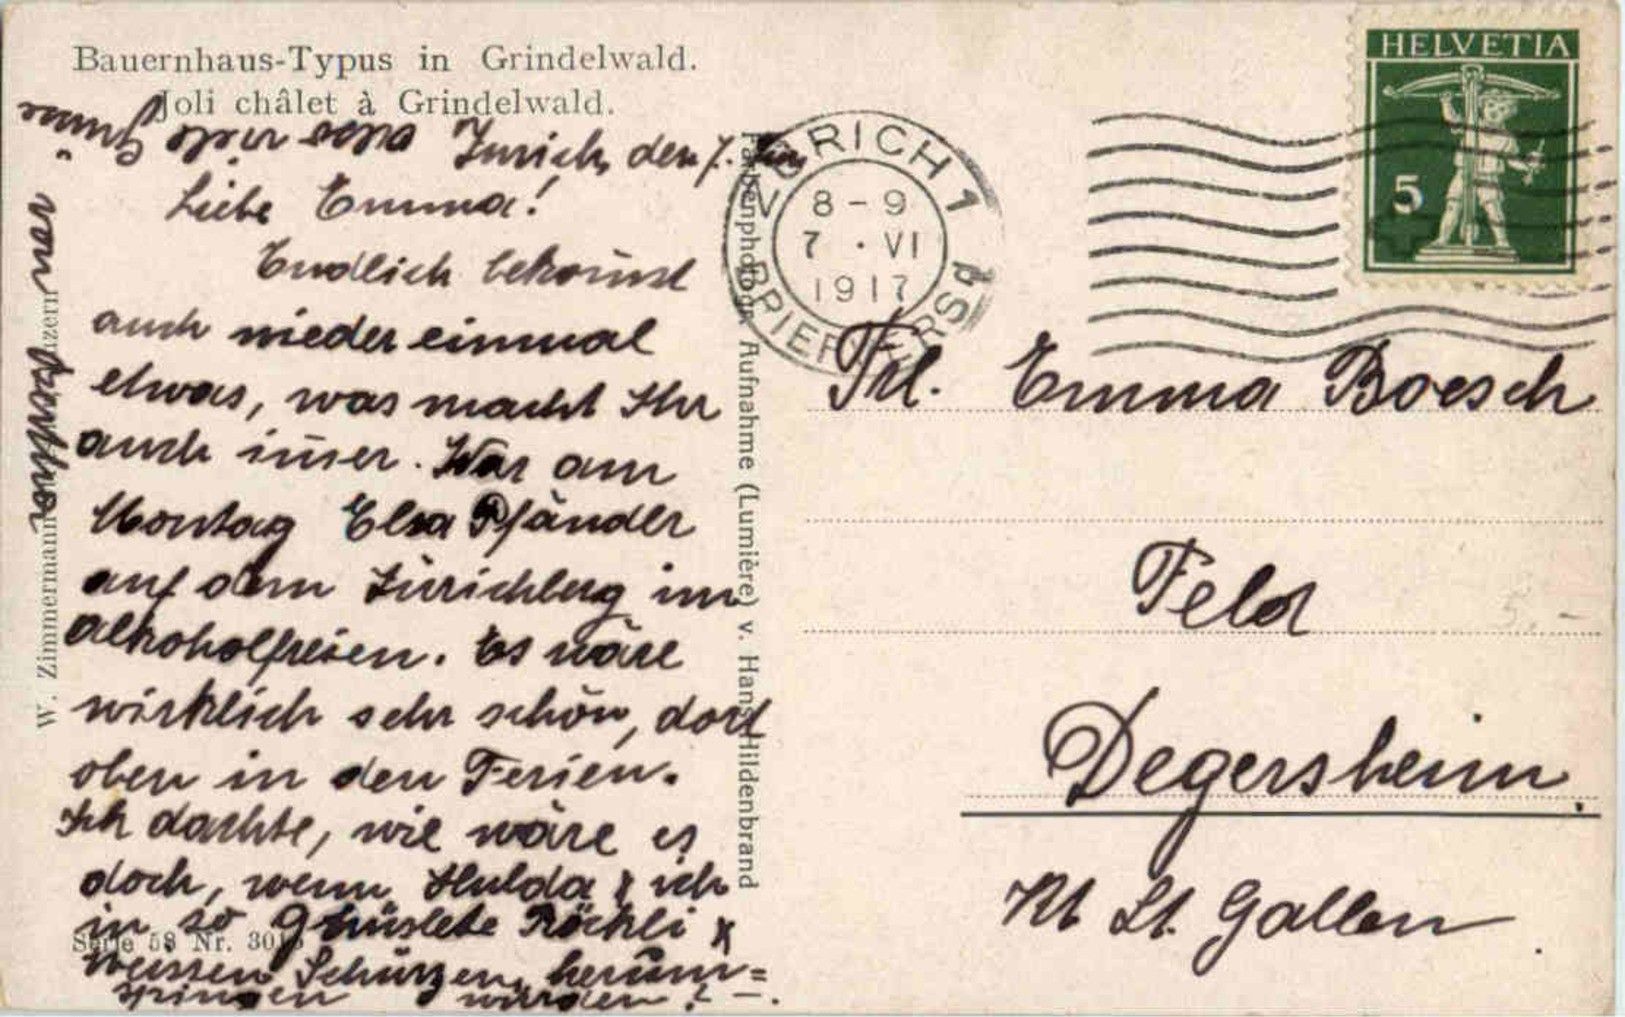 Bauernhaus-Typus in Grindelwald.
Joli châlet à Grindelwald.
Zürich, den 7. Juni
Liebe Emma!
Endlich bekom̅st
auch wieder einmal
etwas, was macht Ihr
auch im̅er. War am
Montag Elsa Pfändler
auf dem Zürichberg im
alkoholfreien. Es wäre
wirklich sehr schön, dort
oben in den Ferien.
Ich dachte, wie wäre es
doch, wenn Hulda & ich
in so ghüslete Röckli &
weissen Schürzen herum=
springen würden! –.
von
Serie 58 Nr. 301
W. Zimmermann
Farbenphotogr. Aufnahme (Lumière) v. Hans Hildenbrand
HELVETIA
5
ZÜRICH 1
8–9
7 · VI
1917
BRIEFVERSd
Frl. Emma Boesch
Feld
Degersheim.
Kt St. Gallen
5.–